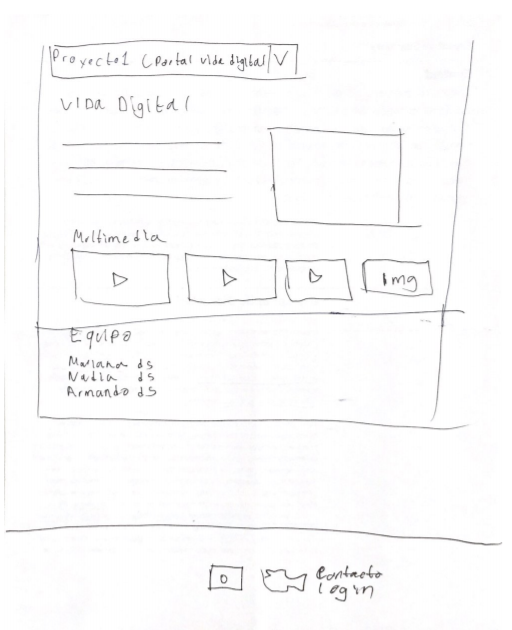 Proyecto1 (Portal vida digital V
VIDa Digital
Multimedia
Img
Equipo
Mariana ds
Nadia ds
Armando ds
Contacto
login